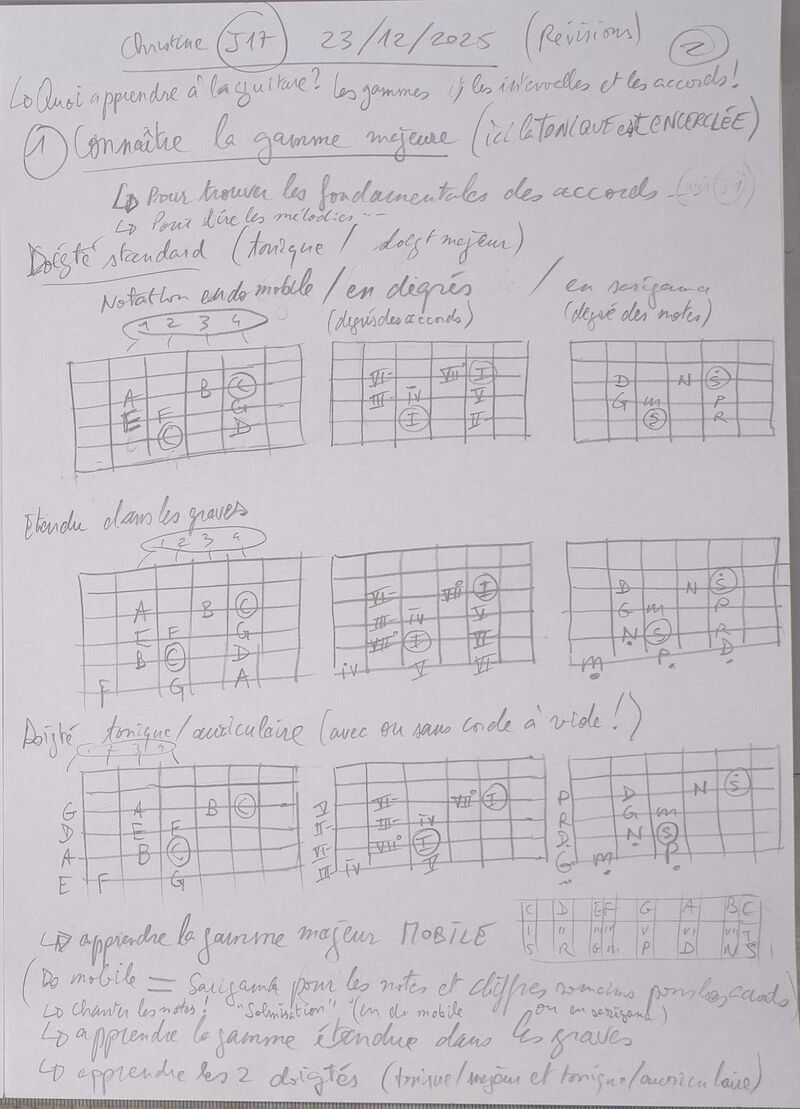 Christine J17 23/12/2025 (Révisions) 2
↳ Quoi apprendre à la guitare? Les gammes, les intervalles et les accords!
1 Connaître la gamme majeure (ici la TONIQUE est ENCERCLÉE)
↳ Pour trouver les fondamentales des accords
↳ Pour lire les mélodies ...
Doigté standard (tonique / doigt majeur)
Notation en do mobile / en degrés / en sarigama
(degrés des accords) (degré des notes)
1 2 3 4
A B C VI- VIIº I D N Ṡ
E F G III- IV V G m P
C D I II- S R
Etendu dans les graves
1 2 3 4
A B C VI- VIIº I D N Ṡ
E F G III- IV V G m P
B C D VIIº I N S R
F G A IV V VI m P D
Doigté tonique/auriculaire (avec ou sans corde à vide!)
1 2 3 4
G A B C V VI- VIIº I P D N Ṡ
D E F II- III- IV R G m
A B C VI- VIIº I D N S
E F G III- IV V G m P
C D E F G A B C
↳ apprendre la gamme majeur MOBILE
S R G m P D N Ṡ
(Do mobile = Sarigama pour les notes et chiffres romains pour les accords)
↳ chanter les notes! "Solmisation" (en do mobile ou en sarigama)
↳ apprendre la gamme étendue dans les graves
↳ apprendre les 2 doigtés (tonique/majeur et tonique/auriculaire)